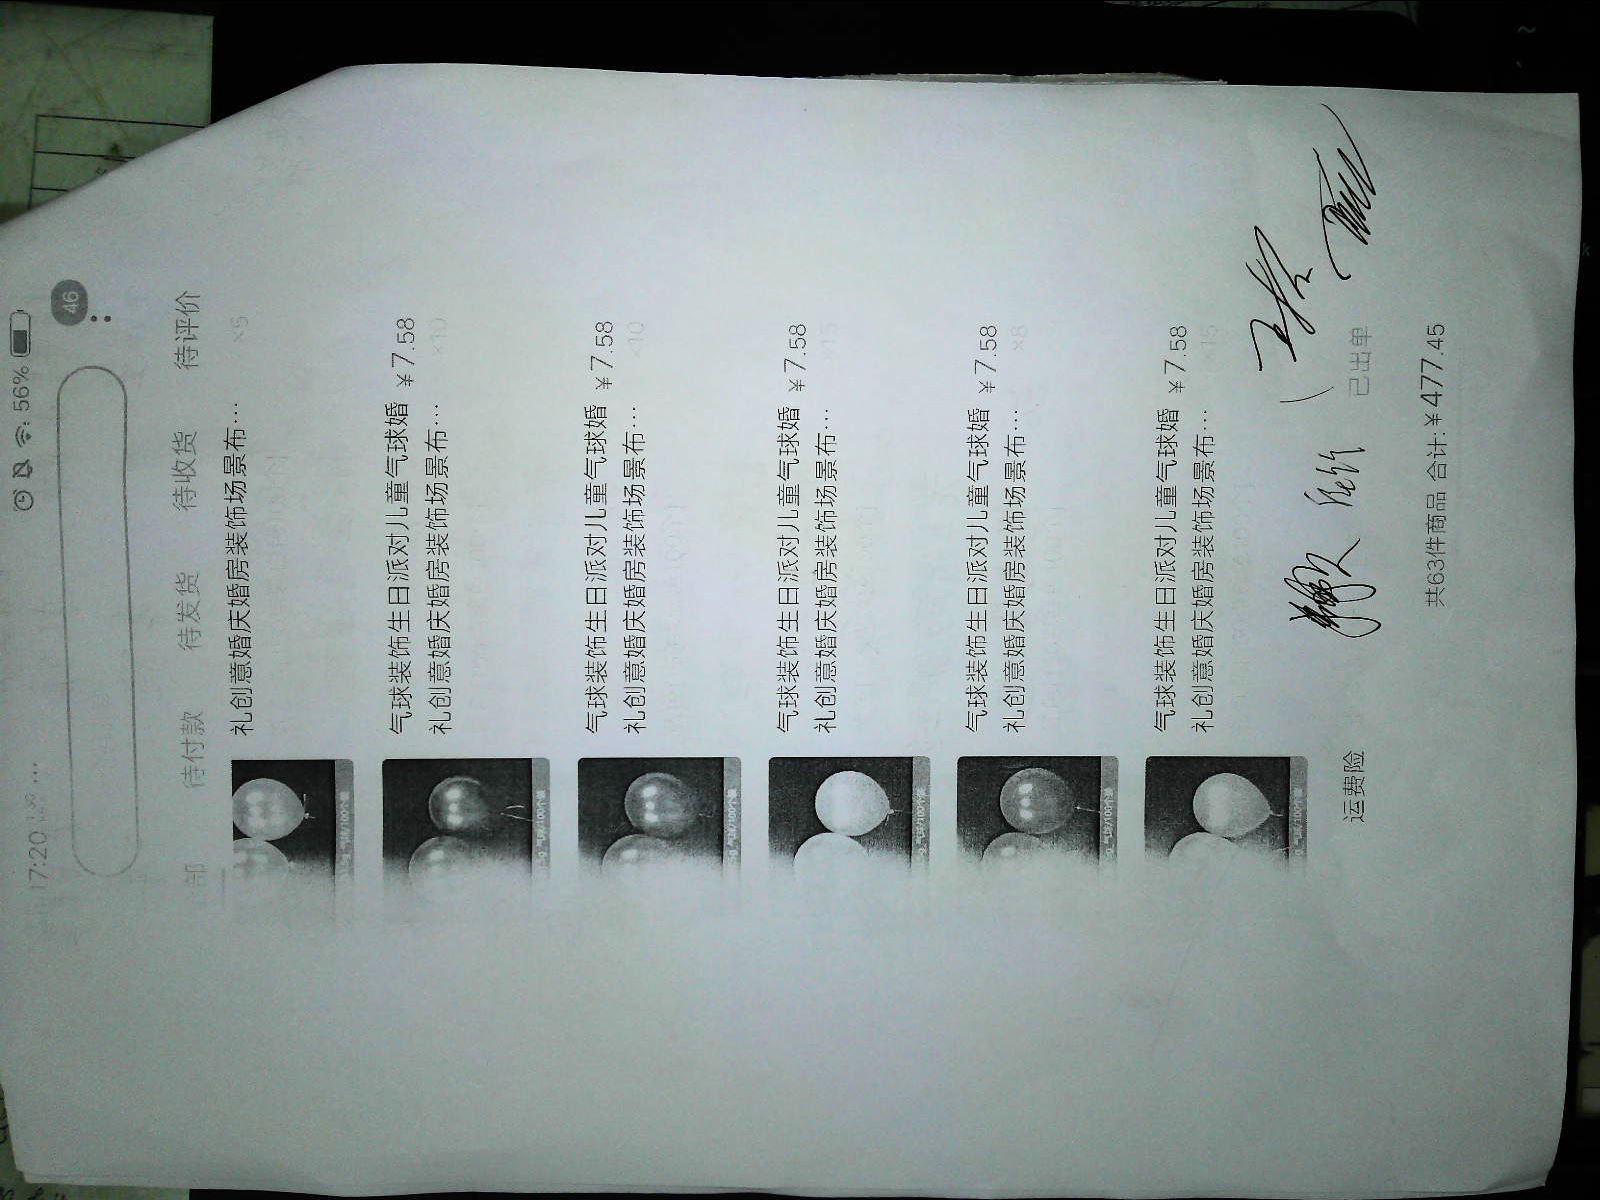 17:20
56%
46
待付款 待发货 待收货 待评价
礼创意婚庆婚房装饰场景布…
×5
气球装饰生日派对儿童气球婚 ¥7.58
礼创意婚庆婚房装饰场景布… ×10
气球装饰生日派对儿童气球婚 ¥7.58
礼创意婚庆婚房装饰场景布… ×10
气球装饰生日派对儿童气球婚 ¥7.58
礼创意婚庆婚房装饰场景布… ×15
气球装饰生日派对儿童气球婚 ¥7.58
礼创意婚庆婚房装饰场景布… ×8
气球装饰生日派对儿童气球婚 ¥7.58
礼创意婚庆婚房装饰场景布… ×15
运费险 已出单
共63件商品 合计:¥477.45